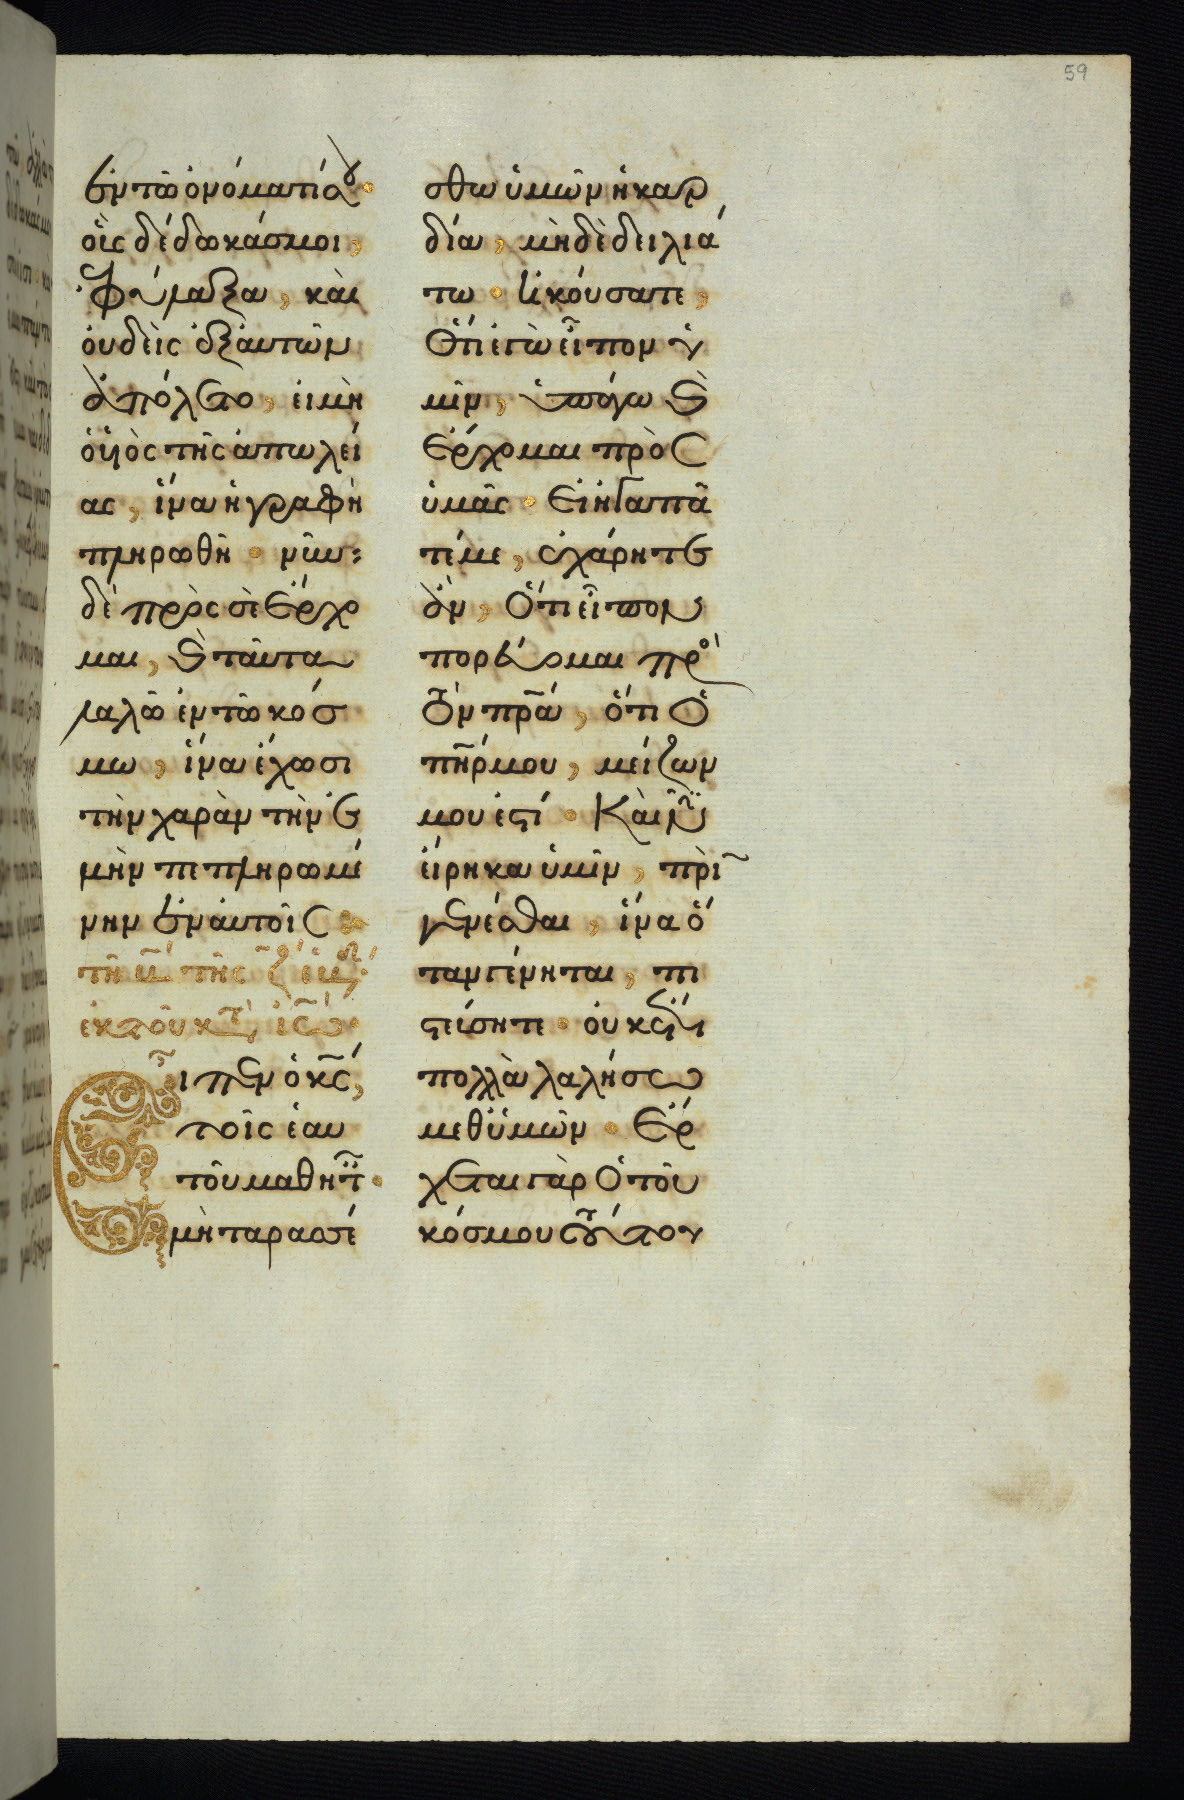 59
ἐν τῶ ὀνόματί σου·
οὓς δέδωκάς μοι,
ἐφύλαξα, καὶ
ουδεὶς ἐξ αὐτῶν
ἀπόλετο, εἰ μὴ
ὁ υἱὸς τῆς ἀπωλεί
ας, ἵνα ἡ γραφὴ
πληρωθῆ· νῦν
δὲ πρὸς σὲ ἔρχο
μαι, καὶ ταῦτα
λαλῶ ἐν τῶ κόσ
μω, ἵνα ἔχωσι
τὴν χαρὰν τὴν ἐ
μὴν πεπληρωμέ
νην ἐν αὐτοῖς
τῆ
τῆς
ἐκ τοῦ κτ ἰω
Εἶπεν ὁ κς,
τοῖς ἑαυ
τοῦ μαθητ·
μὴ ταρασσέ
σθω ὑμῶν ἡ καρ
δία, μὴ δὲ δειλιά
τω· ἠκούσατε,
ὅτι ἐγὼ εἶπον ὑ
μῖν, ὑπάγω καὶ
ἔρχομαι πρὸς
ὑμᾶς· Εἰ ἠγαπᾶ
τέ με, ἐχάρητε
ἂν, ὅτι εἶπον
πορεύομαι πρὸ
τὸν πρα, ὅτι ὁ
πηρ μου, μείζων
μου ἐστί· Καὶ νῦν
εἴρηκα ὑμῖν, πρὶν
γενέσθαι, ἵνα ὅ
ταν γένηται, πι
στεύσητε· οὐκ ἔτι
πολλὰ λαλήσω
μεθ ὑμῶν· Ἔρ
χεται γὰρ ὁ τοῦ
κόσμου τούτου